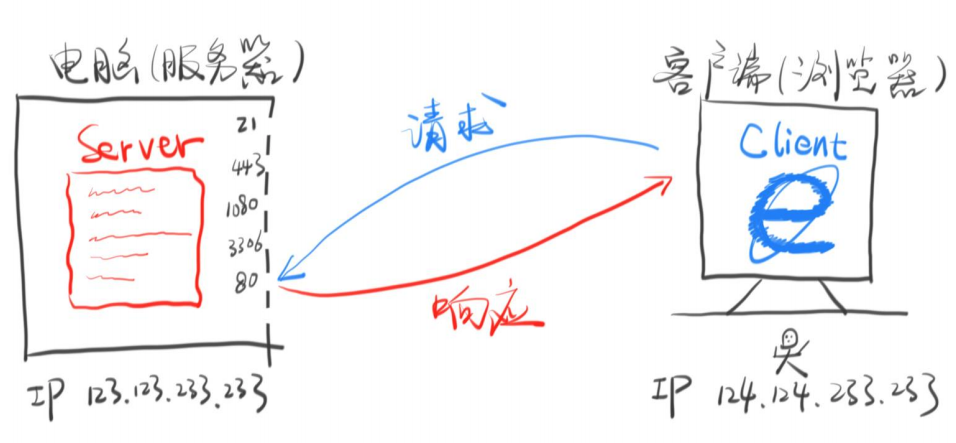 电脑(服务器)
Server
21
443
1080
3306
80
IP 123.123.233.233
请求
响应
客户端(浏览器)
Client
IP 124.124.233.233